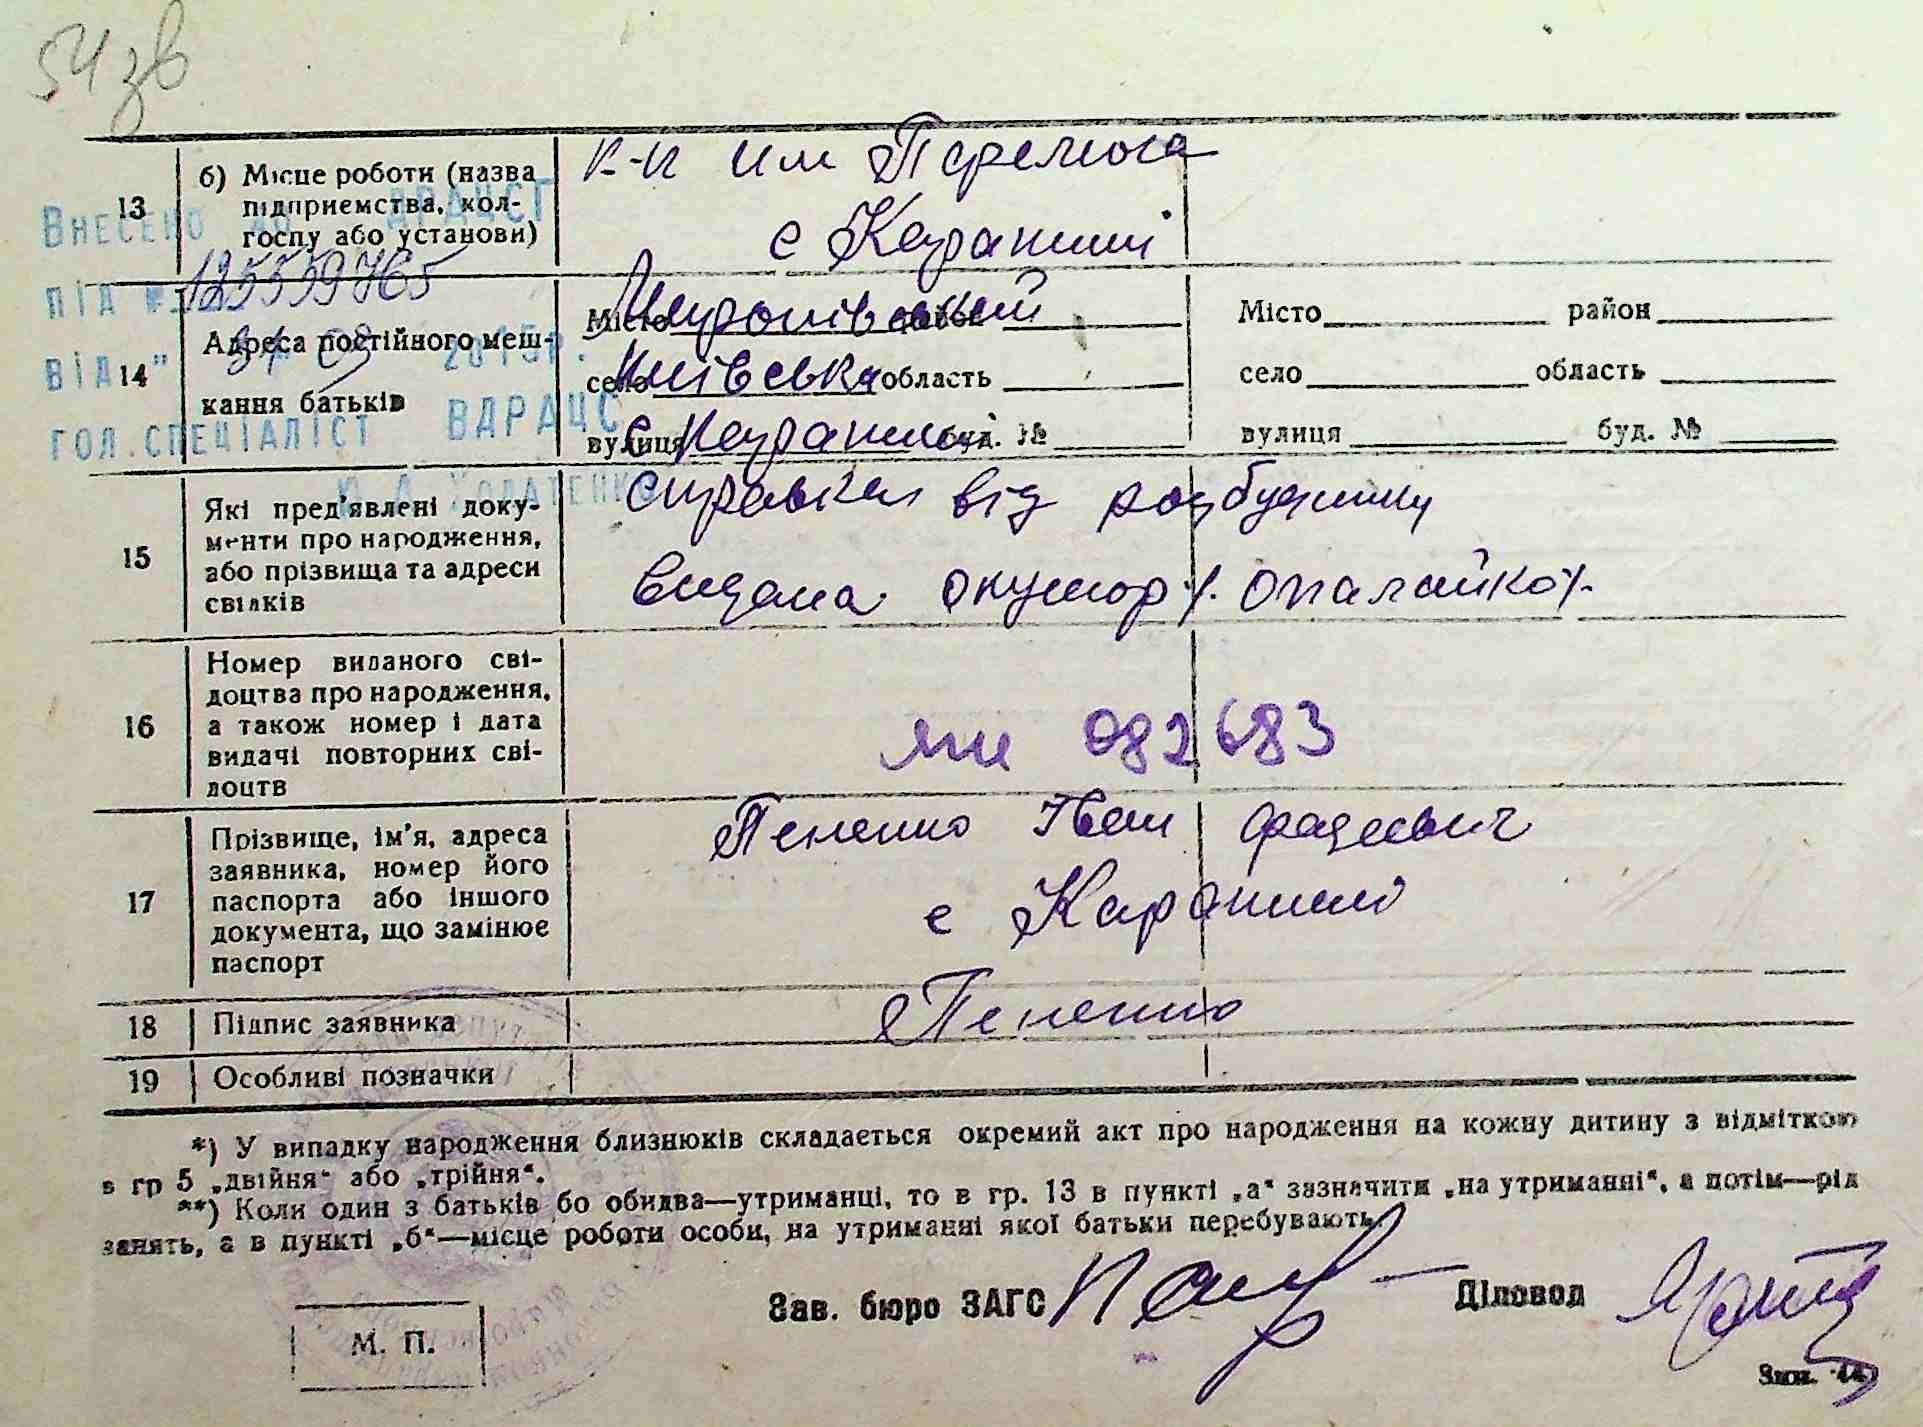 54 зв
13
б) Місце роботи (назва підприємства, колгоспу або установи)
к-п им Перемога
с Карапиші
Внесено до ДРАЦСГ
під № 125559765
від " 31 08 2015р.
гол.спеціаліст ВДРАЦС
14
Адреса постійного мешкання батьків
Місто район
Миронівський
село область
Київська
вулиця буд. №
с Карапиші
Місто район
село область
вулиця буд. №
15
Які пред'явлені документи про народження, або прізвища та адреси свідків
справка від родбудинку
видана
16
Номер виданого свідоцтва про народження, а також номер і дата видачі повторних свідоцтв
082683
17
Прізвище, ім'я, адреса заявника, номер його паспорта або іншого документа, що замінює паспорт
Пененко Іван Фадеевич
с Карапиші
18
Підпис заявника
Пененко
19
Особливі позначки
*) У випадку народження близнюків складається окремий акт про народження на кожну дитину з відміткою
в гр 5 „двійня“ або „трійня“.
**) Коли один з батьків бо обидва—утриманці, то в гр. 13 в пункті „а“ зазначити „на утриманні“, а потім—рід
занять, а в пункті „б“—місце роботи особи, на утриманні якої батьки перебувають.
Зав. бюро ЗАГС
Діловод
М. П.
Зам. 44